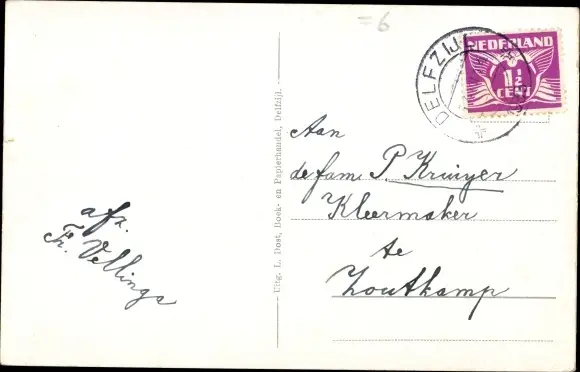 =6
DELFZIJL
NEDERLAND
1½
CENT
Aan
de fam. P. Kruijer
Kleermaker
te
Zoutkamp
afz.
Fr. Vellinga
Uitg. L. Dost, Boek- en Papierhandel, Delfzijl.